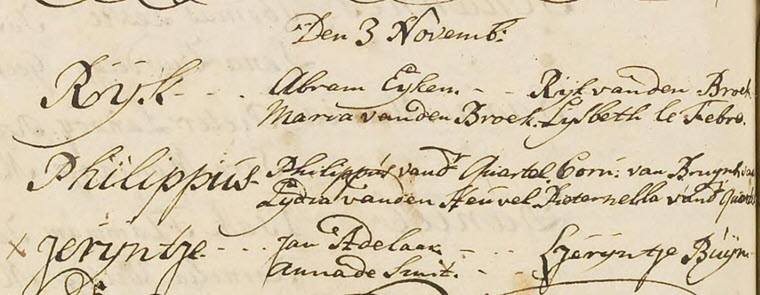 Den 3 Novemb:
Rÿk - - - Abram Eyken - - Ryk vanden Broek
Maria vanden Broek. Lysbeth le Febre.
Philippús Philippús vand Quartel Corn: van Bruynh
Lydia vanden Heuvel Pieternella vand Quart
x Jerÿntje - - - Jan Adelaar - - Tjerÿntje Búÿn
Anna de Smit. -